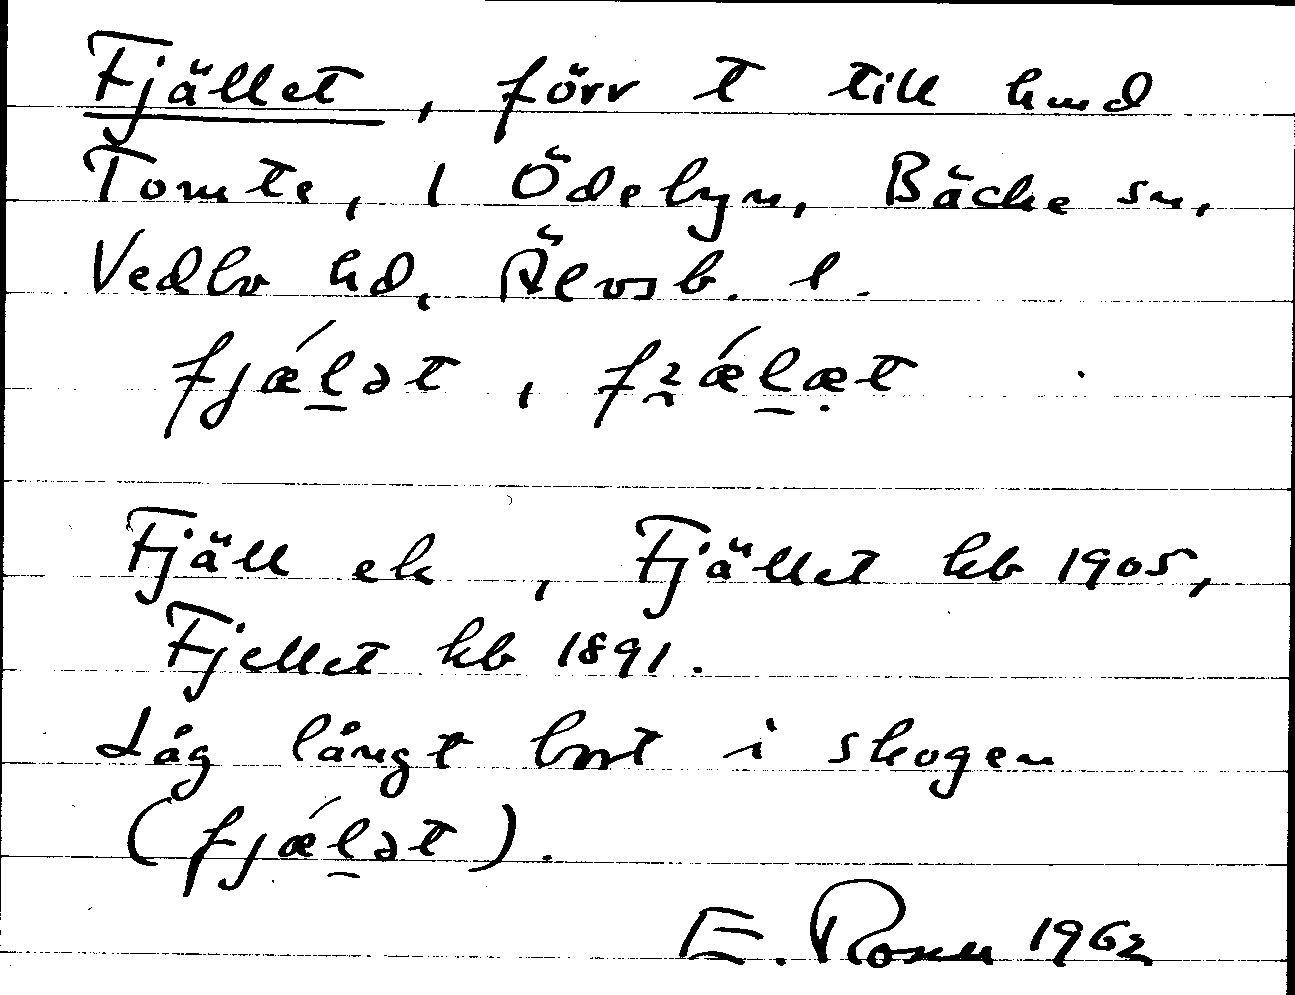 Fjället, förr t till hmd
Tomte, 1 Ödebyn, Bäcke sn,
Vedbo hd, Älvsb. l.
fjǽl̲ət, fʓǽl̲æ̣t
Fjäll ek, Fjället kb 1905,
Fjellet kb 1891.
Låg långt bort i skogen
(fjǽl̲ət).
E. Rosen 1962